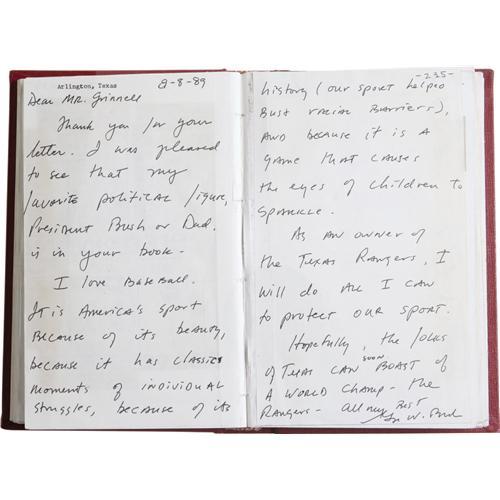 Arlington, Texas 9-8-89
Dear MR. Grinnell
Thank you for your
letter. I was pleased
to see that my
favorite political figure,
President Bush or Dad,
is in your book -
I love Baseball.
It is America's sport
Because of its beauty,
because it has classics
moments of individual
struggles, because of its
-235-
history (our sport helped
Bust racial Barriers),
AND because it is A
game that causes
the eyes of children to
sparkle.
As an owner of
the Texas Rangers, I
will do all I can
to protect our sport.
Hopefully, the folks
of Texas can soon boast of
A world champ - the
Rangers - all my best
W. Bush